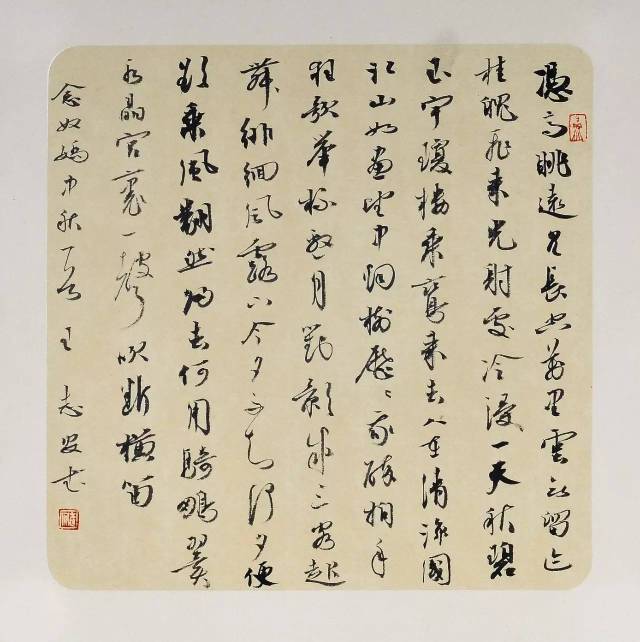 憑高眺遠見長空萬里雲無留迹
桂魄飛來光射處冷浸一天秋碧
玉宇瓊樓乘鸞來去人在清涼國
江山如畫望中烟樹歷〻我醉拍手
狂歌舉杯邀月對影成三客起
舞徘徊風露下今夕不知何夕便
欲乘風翻然歸去何用騎鵬翼
水晶宮裏一聲吹斷橫笛
念奴嬌中秋一首王志安书